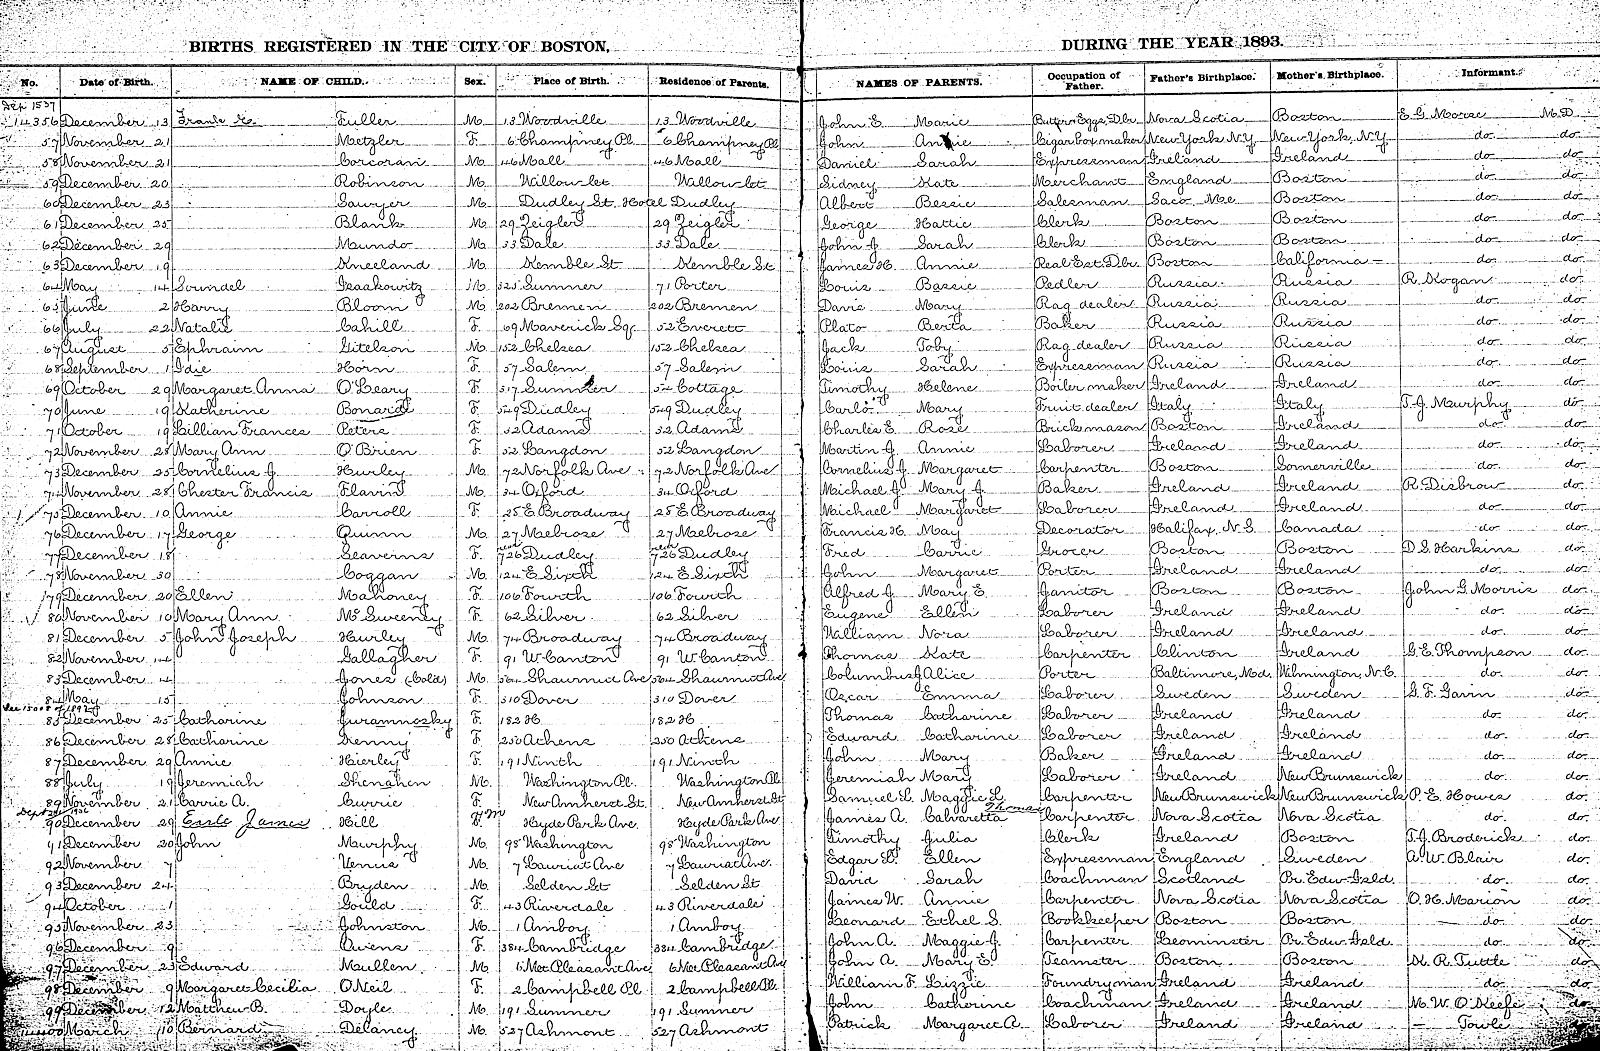 BIRTHS REGISTERED IN THE CITY OF BOSTON, DURING THE YEAR 1893.
No. Date of Birth. NAME OF CHILD. Sex. Place of Birth. Residence of Parents. NAMES OF PARENTS. Occupation of Father. Father's Birthplace. Mother's Birthplace. Informant.
Sep 1537
14356 December 13 Frank Fuller M. 13 Woodville 13 Woodville John E. Marie Butter & Eggs Dlr. Nova Scotia Boston E G Morse M.D.
57 November 21 Metzler F. 6 Champney Pl. 6 Champney Pl John Annie Cigar box maker New York, N.Y. New York, N.Y. do. do.
58 November 21 Corcoran M. 46 Mall 46 Mall Daniel Sarah Expressman Ireland Ireland do. do.
59 December 20 Robinson M. Willow Ct Willow Ct Sidney Kate Merchant England Boston do. do.
60 December 23 Sawyer M. Dudley St. Hotel Dudley Albert Bessie Salesman Saco Me Boston do. do.
61 December 25 Blank M. 29 Zeigler 29 Zeigler George Hattie Clerk Boston Boston do. do.
62 December 29 Mundo M. 33 Dale 33 Dale John J. Sarah Clerk Boston Boston do. do.
63 December 19 Kneeland M. Kemble St Kemble St James H. Annie Real Est. Dlr. Boston California do. do.
64 May 14 Isaakowitz M. 325 Sumner 71 Porter Louis Bessie Pedler Russia Russia R. Kogan do.
65 June 2 Harry Bloom M. 202 Bremen 202 Bremen Davis Mary Rag dealer Russia Russia do. do.
66 July 22 Natalie Cahill F. 69 Maverick Sq. 52 Everett Plato Berta Baker Russia Russia do. do.
67 August 5 Ephraim Gitelson M. 152 Chelsea 152 Chelsea Jack Toby Rag dealer Russia Russia do. do.
68 September 1 Idie Horn F. 57 Salem 57 Salem Louis Sarah Expressman Russia Russia do. do.
69 October 29 Margaret Anna O'Leary F. 517 Sumner 54 Cottage Timothy Helene Boiler maker Ireland Ireland do. do.
70 June 19 Katherine Bonardi F. 549 Dudley 549 Dudley Carlo Mary Fruit dealer Italy Italy T. J. Murphy do.
71 October 19 Lillian Frances Peters F. 32 Adams 32 Adams Charles E. Rose Brick mason Boston Ireland do. do.
72 November 28 Mary Ann O'Brien F. 52 Langdon 52 Langdon Martin J. Annie Laborer Ireland Ireland do. do.
73 December 25 Cornelius J. Hurley M. 72 Norfolk Ave 72 Norfolk Ave Cornelius J. Margaret Carpenter Boston Somerville do. do.
74 November 28 Chester Francis Flavin M. 34 Oxford 34 Oxford Michael J. Mary J. Baker Ireland Ireland R. Disbrow do.
75 December 10 Annie Carroll F. 25 E Broadway 25 E Broadway Michael Margaret Laborer Ireland Ireland do. do.
76 December 17 George Quinn M. 27 Melrose 27 Melrose Francis H. May Decorator Halifax, N.S. Canada do. do.
77 December 18 Seaverns F. rear 726 Dudley rear 726 Dudley Fred Carrie Grocer Boston Boston D. S. Harkins do.
78 November 30 Coggan M. 124 E Sixth 124 E Sixth John Margaret Porter Ireland Ireland do. do.
79 December 20 Ellen Mahoney F. 106 Fourth 106 Fourth Alfred J. Mary E. Janitor Boston Boston John G. Morris do.
80 November 10 Mary Ann McSweeny F. 62 Silver 62 Silver Eugene Ellen Laborer Ireland Ireland do. do.
81 December 5 John Joseph Hurley M. 74 Broadway 74 Broadway William Nora Laborer Ireland Ireland do. do.
82 November 14 Gallagher F. 91 W Canton 91 W Canton Thomas Kate Carpenter Clinton Ireland G. E. Thompson do.
83 December 4 Jones (Col'd) M. 564 Shawmut Ave 564 Shawmut Ave Columbus J Alice Porter Baltimore, Md. Wilmington, N.C. do. do.
84 May 15 Johnson F. 310 Dover 310 Dover Oscar Emma Laborer Sweden Sweden G. F. Gavin do.
85 December 25 Catharine F. 182 H 182 H Thomas Catharine Laborer Ireland Ireland do. do.
86 December 28 Catharine Kenny F. 250 Athens 250 Athens Edward Catharine Laborer Ireland Ireland do. do.
87 December 29 Annie Hierley F. 191 Ninth 191 Ninth John Mary Baker Ireland Ireland do. do.
88 July 19 Jeremiah Shenahen M. Washington Pl. Washington Pl Jeremiah Mary Laborer Ireland New Brunswick do. do.
89 November 21 Carrie A. Currie F. New Amherst St. New Amherst St Samuel L. Maggie L. Carpenter New Brunswick New Brunswick P. E. Howes do.
90 December 29 Earle James Hill F. M Hyde Park Ave. Hyde Park Ave James A. Calvaretta Thomas Carpenter Nova Scotia Nova Scotia do. do.
91 December 20 John Murphy M. 95 Washington 95 Washington Timothy Julia Clerk Ireland Boston T. J. Broderick do.
92 November 7 Venia M. 7 Lauriat Ave 7 Lauriat Ave. Edgar D. Ellen Expressman England Sweden A. W. Blair do.
93 December 24 Bryden M. Selden St Selden St David Sarah Coachman Scotland Pr. Edw. Isld. do. do.
94 October 1 Gould F. 43 Riverdale 43 Riverdale James W. Annie Carpenter Nova Scotia Nova Scotia O. H. Marion do.
95 November 23 Johnston M. 1 Amboy 1 Amboy Leonard Ethel S. Bookkeeper Boston Boston do. do.
96 December 9 Owens F. 384 Cambridge 384 Cambridge John A. Maggie J. Carpenter Leominster Pr. Edw. Isld. do. do.
97 December 23 Edward Mullen M. 6 Mt Pleasant Ave 6 Mt Pleasant Ave John A. Mary E. Teamster Boston Boston H. R. Tuttle do.
98 December 9 Margaret Cecilia O'Neil F. 2 Campbell Pl 2 Campbell Pl. William F. Lizzie Foundryman Ireland Ireland do. do.
99 December 12 Matthew B. Doyle M. 191 Sumner 191 Sumner John Catherine Coachman Ireland Ireland M. W. O'Keefe do.
14400 March 10 Bernard Delancy M. 527 Ashmont 527 Ashmont Patrick Margaret A. Laborer Ireland Ireland — Towle do.